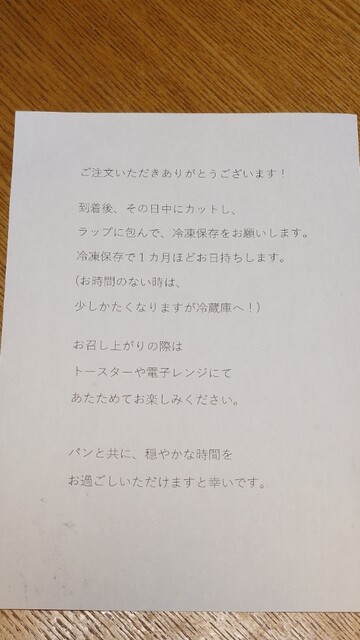 ご注文いただきありがとうございます！
到着後、その日中にカットし、
ラップに包んで、冷凍保存をお願いします。
冷凍保存で１カ月ほどお日持ちします。
(お時間のない時は、
少しかたくなりますが冷蔵庫へ！)
お召し上がりの際は
トースターや電子レンジにて
あたためてお楽しみください。
パンと共に、穏やかな時間を
お過ごしいただけますと幸いです。